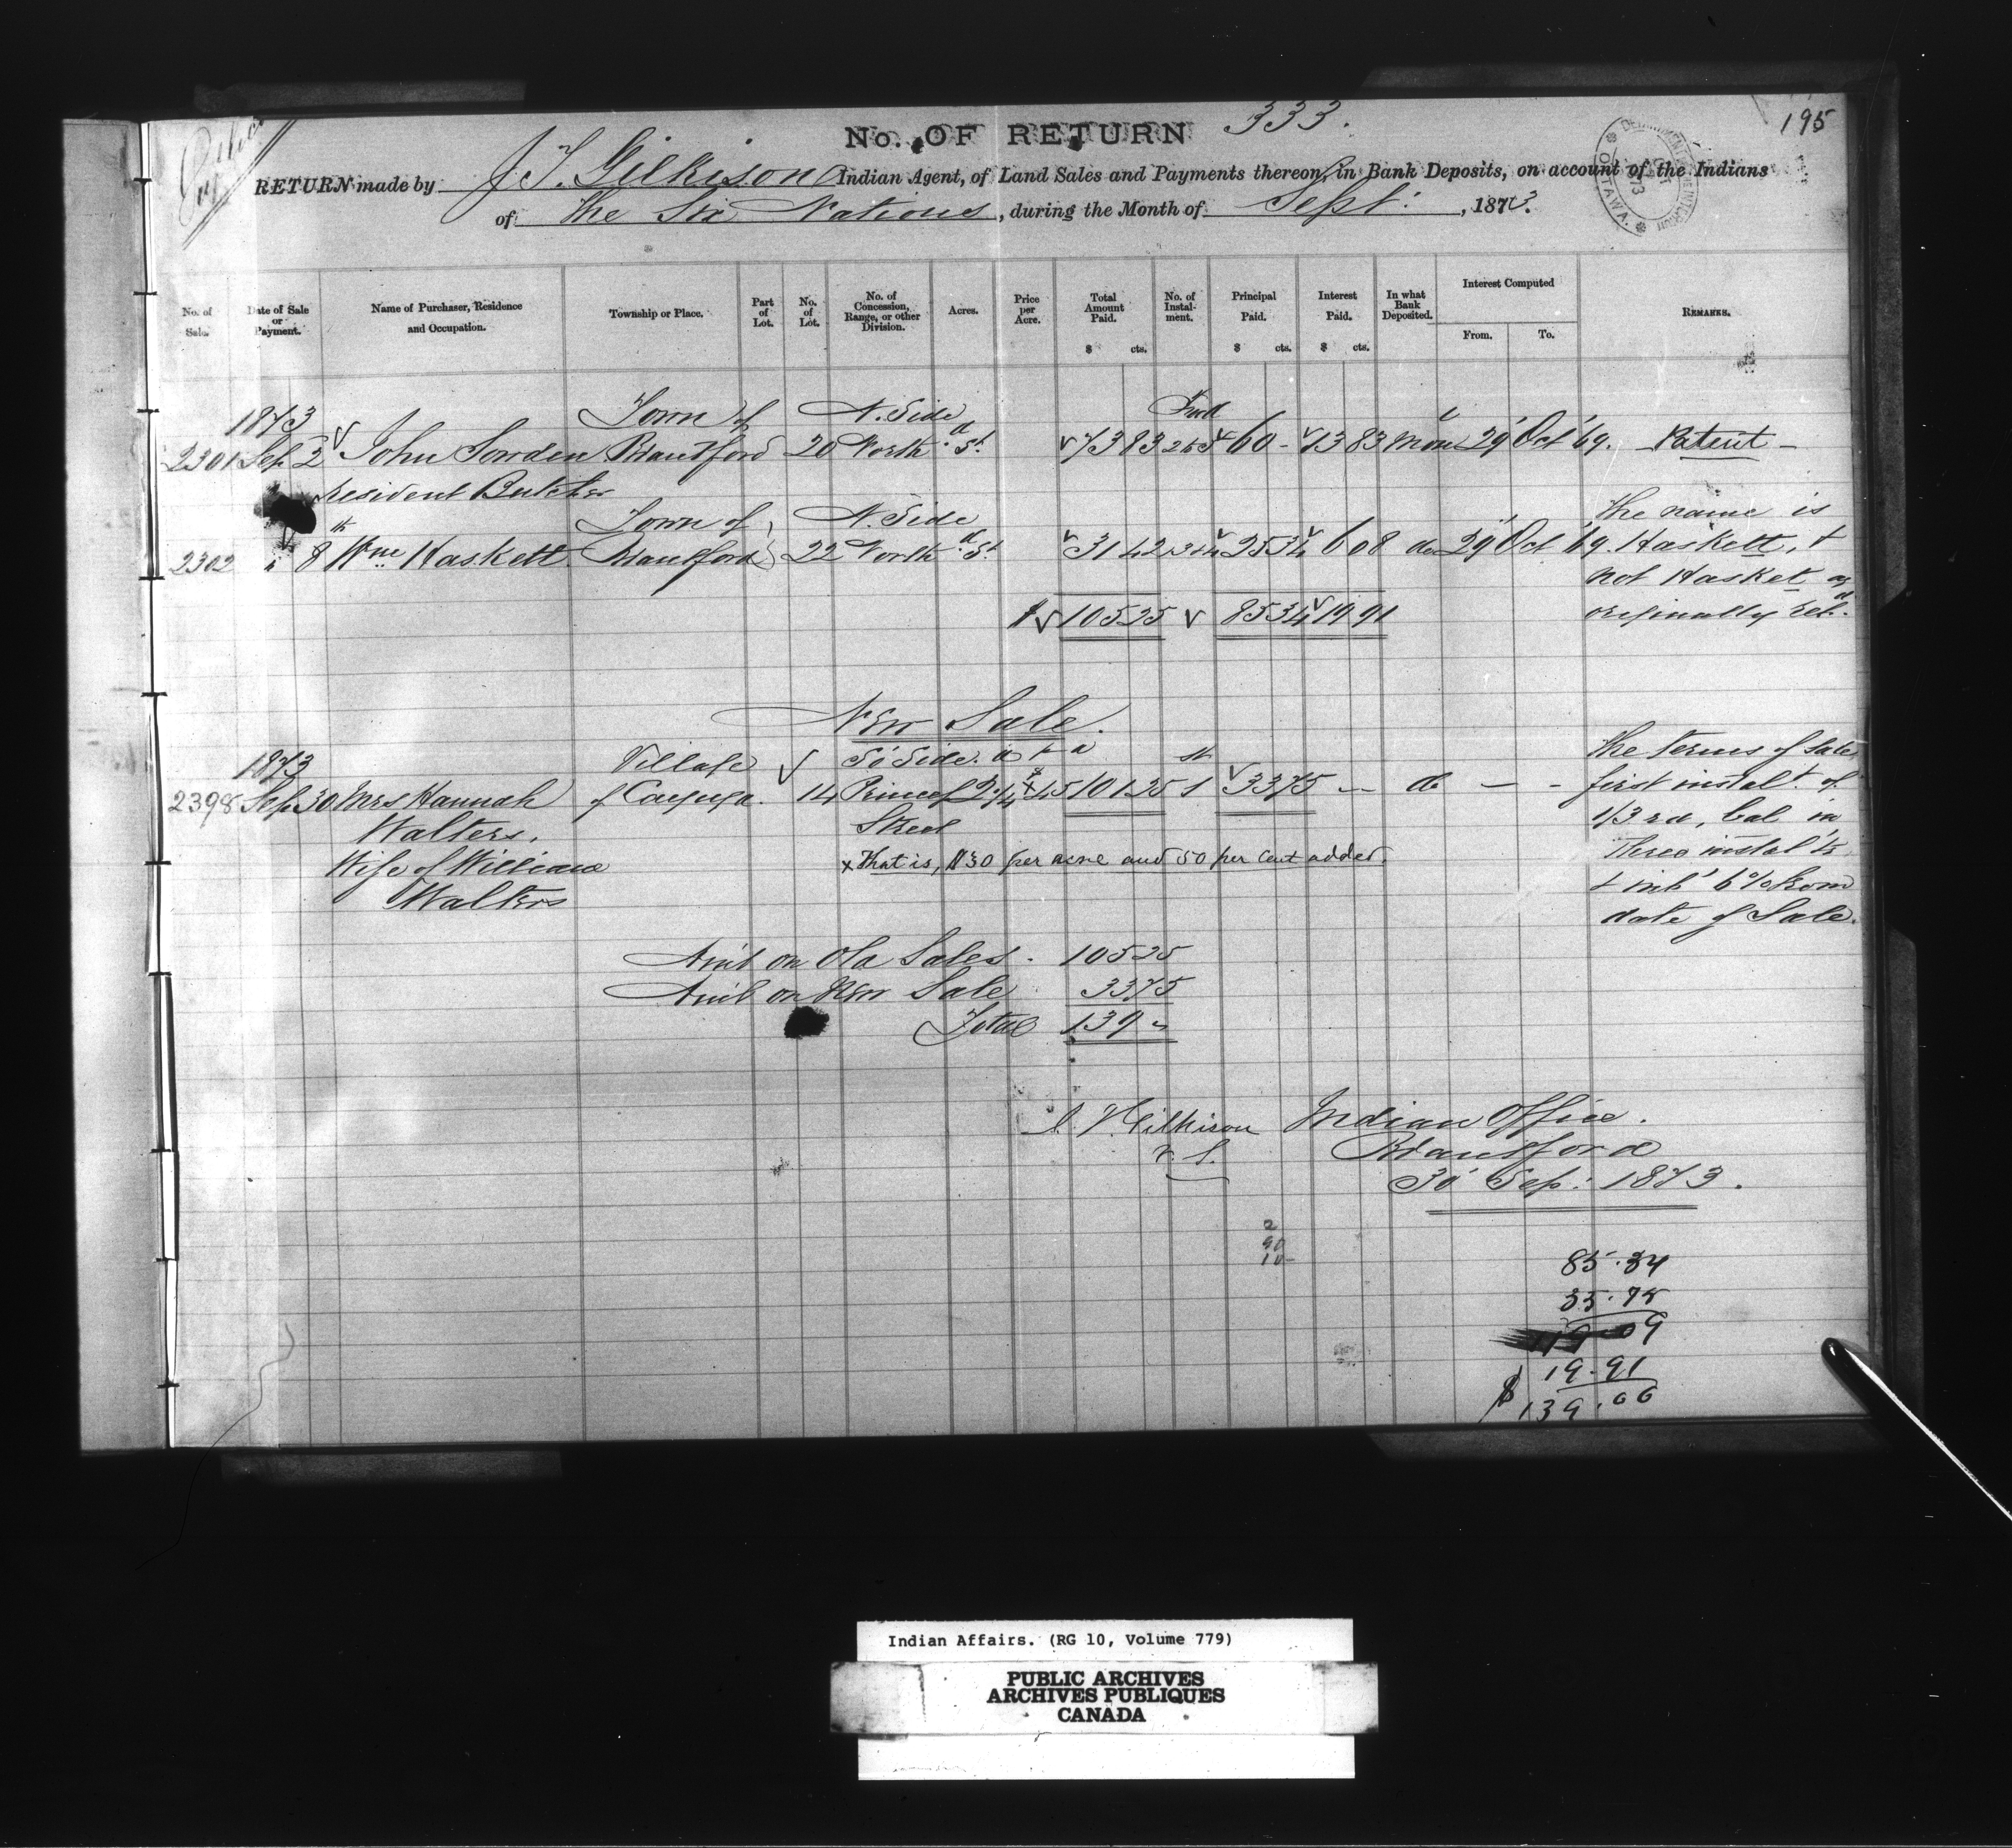 195
No. OF RETURN 333.
RETURN made by J. T. Gilkison Indian Agent, of Land Sales and Payments thereon, in Bank Deposits, on account of the Indians
of the Six Nations, during the Month of Sept: , 1873.
No. of Sale. Date of Sale or Payment. Name of Purchaser, Residence and Occupation. Township or Place. Part of Lot. No. of Lot. No. of Concession, Range, or other Division. Acres. Price per Acre. Total Amount Paid. $ cts. No. of Instalment. Principal Paid. $ cts. Interest Paid. $ cts. In what Bank Deposited. Interest Computed From. To. REMARKS.
1873 Town of N. Side
2301 Sep 2 John Sowden Brantford 20 North St 73 83 60 - 13 83 Mon 29 Oct '69. Patent -
resident Butcher
Town of N. Side the name is
2302 " 8 Wm Haskett Brantford 22 North St 31 42 25 34 6 08 do 29 Oct '69. Haskett, &
not Hasket as
$ 105 25 85 34 19 91 originally ret'd.
New Sale.
1873 Village So Side. a r a st the terms of Sale
2398 Sep. 30 Mrs Hannah of Cayuga. 14 Princes 2 1/4 x 45 101 25 1 33 75 -- do — - first instalt. of
Walters. Street 1/3rd, bal in
Wife of William x That is, $30 per acre and 50 per cent added. three instal'ts
Walters & int 6% from
date of Sale.
Am't on Old Sales - 105 25
Am't on New Sale 33 75
Total 139 "
J. T. Gilkison Indian Office.
V. S. Brantford
30 Sep: 1873.
2
90
10-
85.34
33.75
119.09
19.91
$ 139.00
Indian Affairs. (RG 10, Volume 779)
PUBLIC ARCHIVES
ARCHIVES PUBLIQUES
CANADA